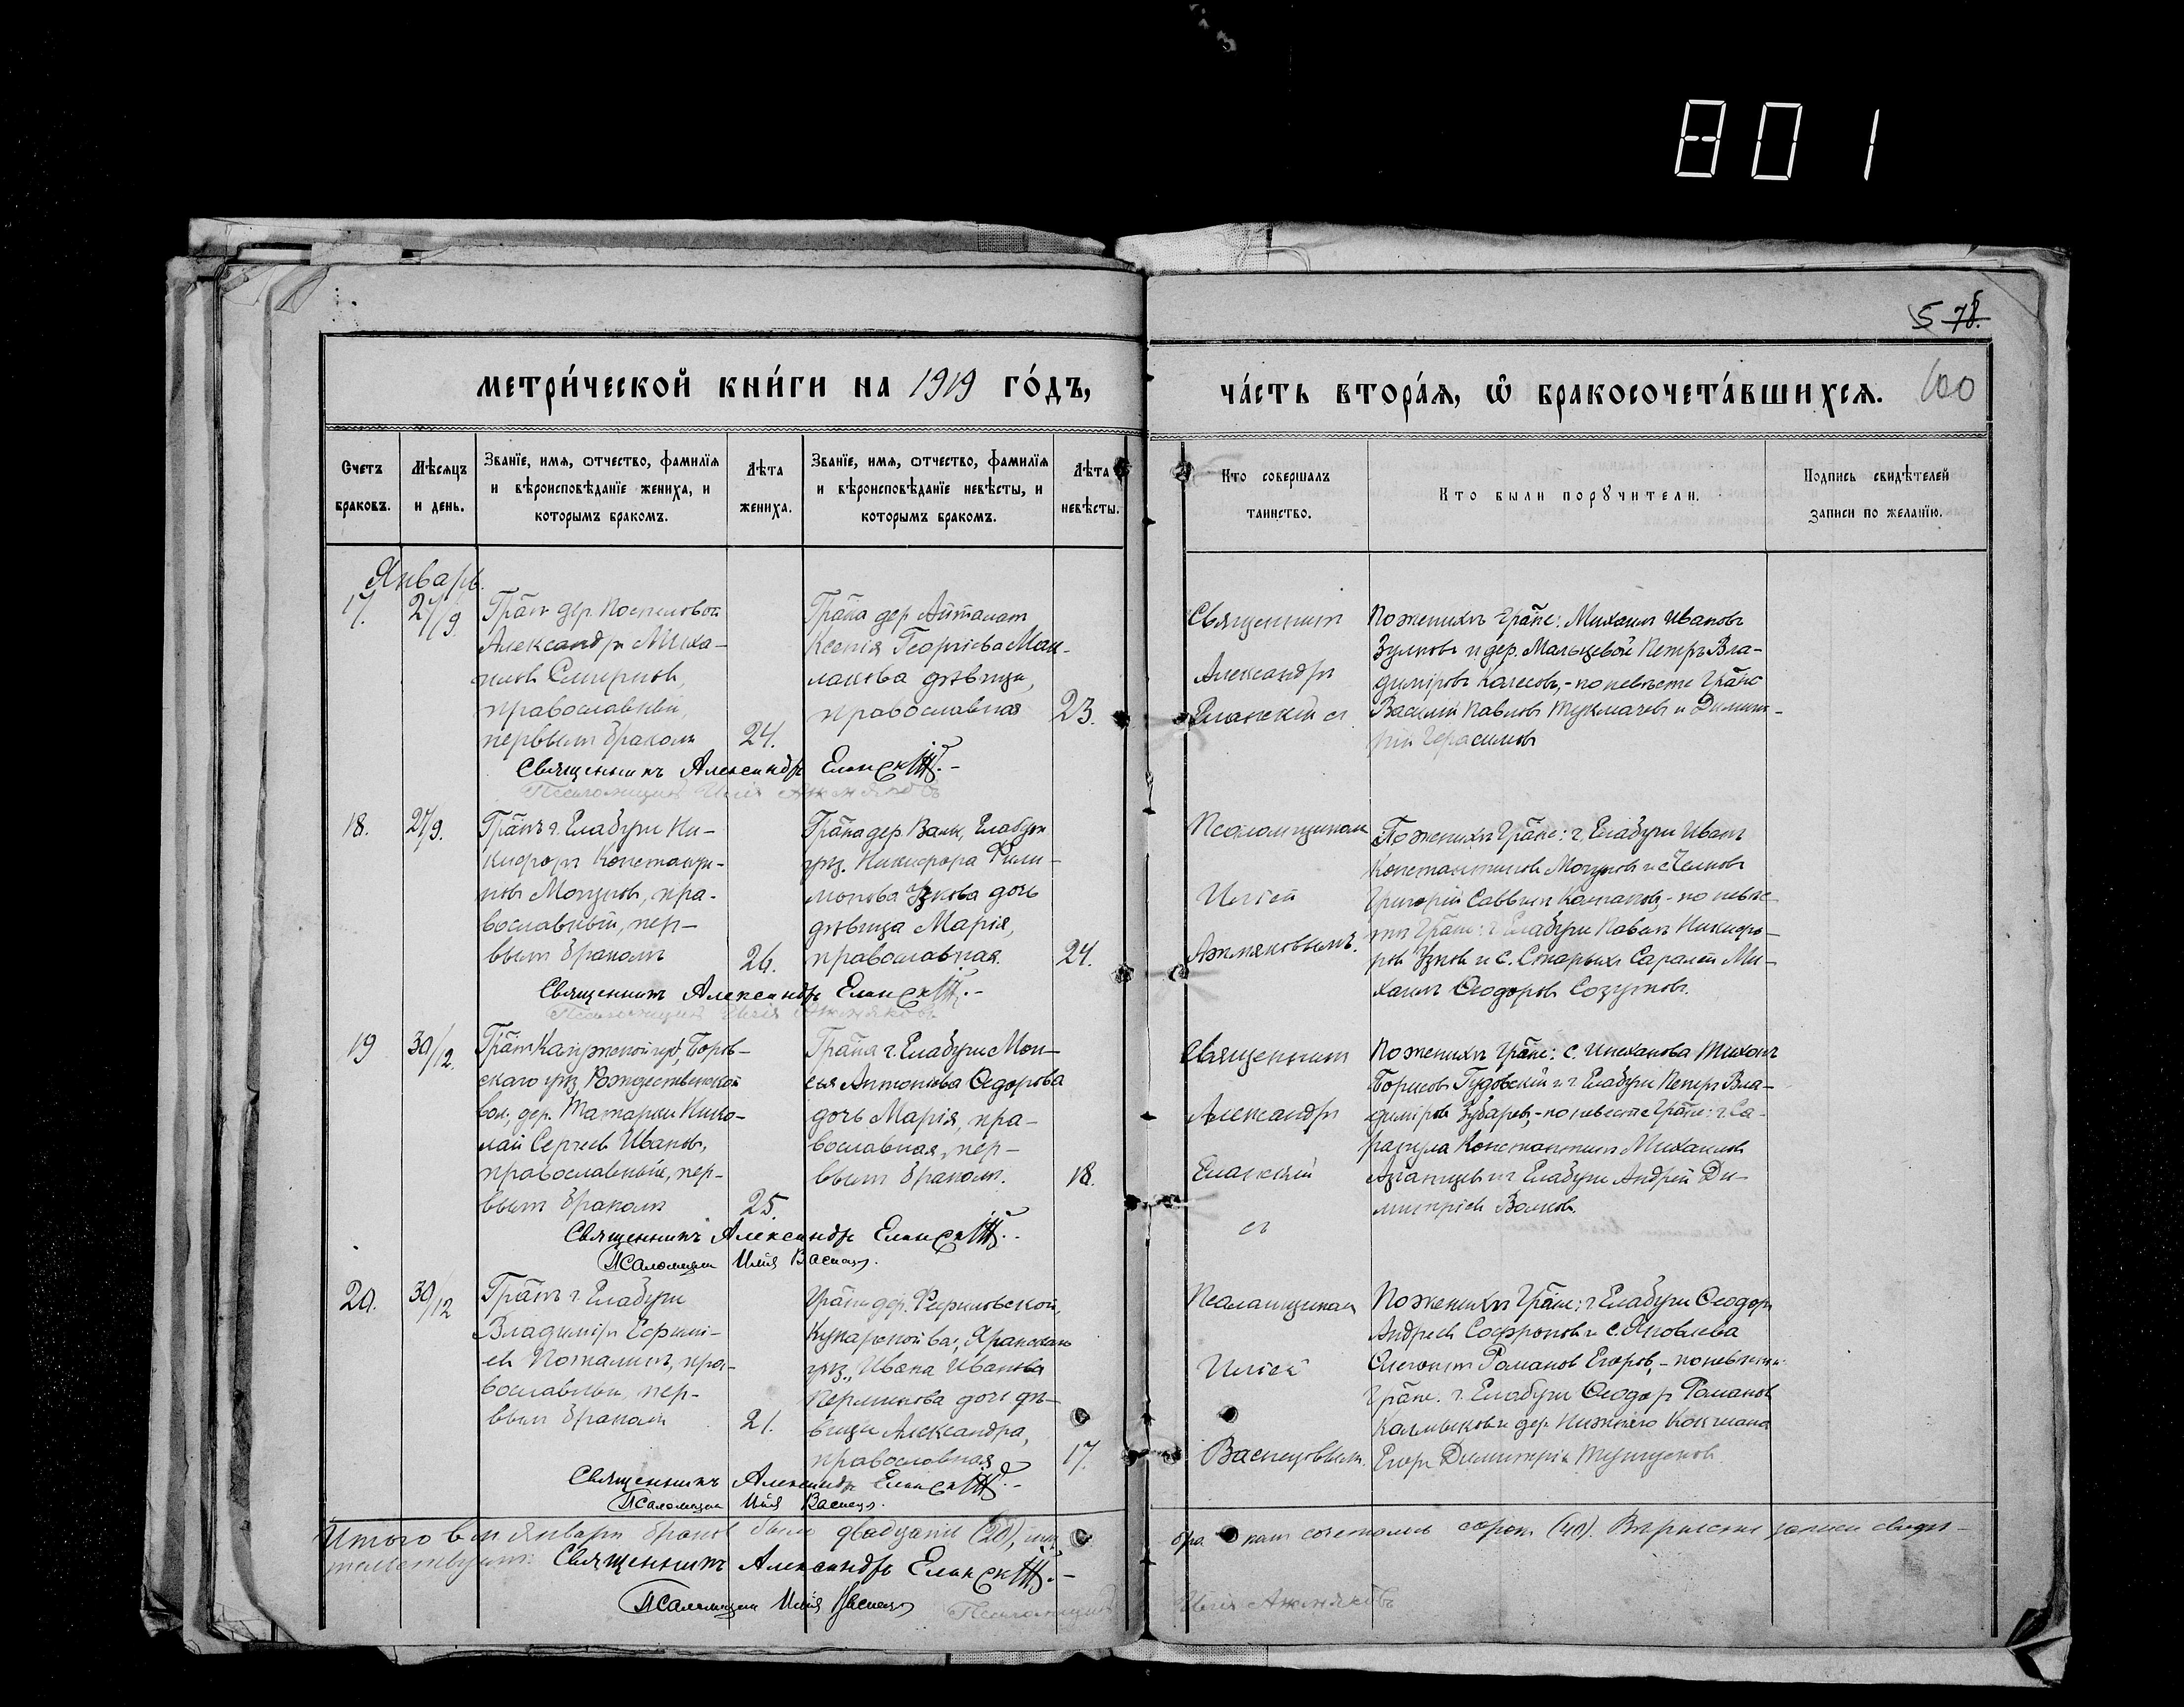 801
5 78.
МЕТРИ́ЧЕСКОЙ КНИ́ГИ НА 1919 ГО́ДЪ,
ЧА́СТЬ ВТОРА́Я, Ѿ БРАКОСОЧЕТА́ВШИХСЯ. 100
Счетъ браковъ.
Мѣсяцъ и день.
Званїе, имя, ѿтчество, фамилїя
и вѣроисповѣданїе жениха, и
которымъ бракомъ.
Лѣта
жениха.
Званїе, имя, ѿтчество, фамилїя
и вѣроисповѣданїе невѣсты, и
которымъ бракомъ.
Лѣта
невѣсты.
Кто совершалъ
таинство.
Кто были порꙋчители.
Подпись свидѣтелей
записи по желанїю.
Январь.
17. 27/9.
Гран дер. Поспеловой
Александръ Миха-
иловъ Смирновъ,
православный,
первымъ бракомъ
24.
Гр-на дер
Ксенія Георгіева Мак-
лакова дѣвица,
православная
23.
Священникъ
Александръ
Еланскій съ
По женихѣ гр-не: Михаилъ Ивановъ
и дер. Мальцевой Петръ Вла-
диміровъ Колесовъ, - по невѣсте гр-не
Василій Павловъ Тукмачевъ и Димит-
рій Герасимовъ
Священникъ Александръ Еланскій. -
Псаломщикъ Илія Ажмяковъ
18. 27/9.
Гр-нъ г. Елабуги Ни-
кифоръ Константи-
новъ Мокуровъ, пра-
вославный, пер-
вымъ бракомъ
26.
Гр-на дер. Елабуж
уѣз. Никифора Фили-
монова Узкова дочь
дѣвица Марія,
православная.
24.
Псаломщикомъ
Иліей
Ажмяковымъ.
По женихѣ гр-не: г. Елабуги Иванъ
Константиновъ и с. Челновъ
Григорій Саввинъ - по невѣс-
тѣ гр-не: г. Елабуги Павелъ Никифо-
ровъ Узковъ и с. Старыхъ Саралей Ми-
хаилъ Ѳеодоровъ
Священникъ Александръ Еланскій. -
Псаломщикъ Илія Ажмяковъ
19 30/12.
Гр-нъ Калужской губ., Боров-
скаго уѣз Рождественской
вол. дер. Татарки Нико-
лай Сергѣевъ Ивановъ,
православный, пер-
вымъ бракомъ
25.
Гр-на г. Елабуги Мои-
сея Антоніева Ѳедорова
дочь Марія, пра-
вославная, пер-
вымъ бракомъ.
18.
Священникъ
Александръ
Еланскій
съ
По женихѣ гр-не: с. Тихонъ
Борисовъ Гудовскій и г. Елабуги Петръ Вла-
диміровъ Зубаревъ, - по невѣсте гр-не: г. Са-
рапула Константинъ Михаиловъ
и г. Елабуги Андрей Ди-
митріевъ Волковъ.
Священникъ Александръ Еланскій. -
Псаломщикъ Илія Васнецов.
20. 30/12
Гр-нъ г. Елабуги
Владиміръ Ефимі-
евъ Поталицинъ, пра-
вославный, пер-
вымъ бракомъ
21.
Гр-на дер.
Кукарской вол., Яранскаго
уѣз., Ивана Иванова
Перминова дочь дѣ-
вица Александра,
православная
17.
Псаломщикомъ
Иліей
Васнецовымъ.
По женихѣ гр-не: г. Елабуги Ѳеодоръ
Андреевъ Софроновъ и с. Яковлева
Романовъ Егоровъ, - по невѣсте
гр-не. г. Елабуги Ѳеодоръ Романовъ
Калмыковъ и дер. Нижняго Кокшана
Егоръ Димитріевъ
Священникъ Александръ Еланскій. -
Псаломщикъ Илія Васнецов.
Итого въ м. Январѣ браковъ было двадцать (20),
бракомъ сочеталось сорокъ (40). Вѣрность записи свидѣ-
тельствуютъ: Священникъ Александръ Еланскій. -
Псаломщикъ Илія Васнецов
Псаломщикъ Илія Ажмяковъ